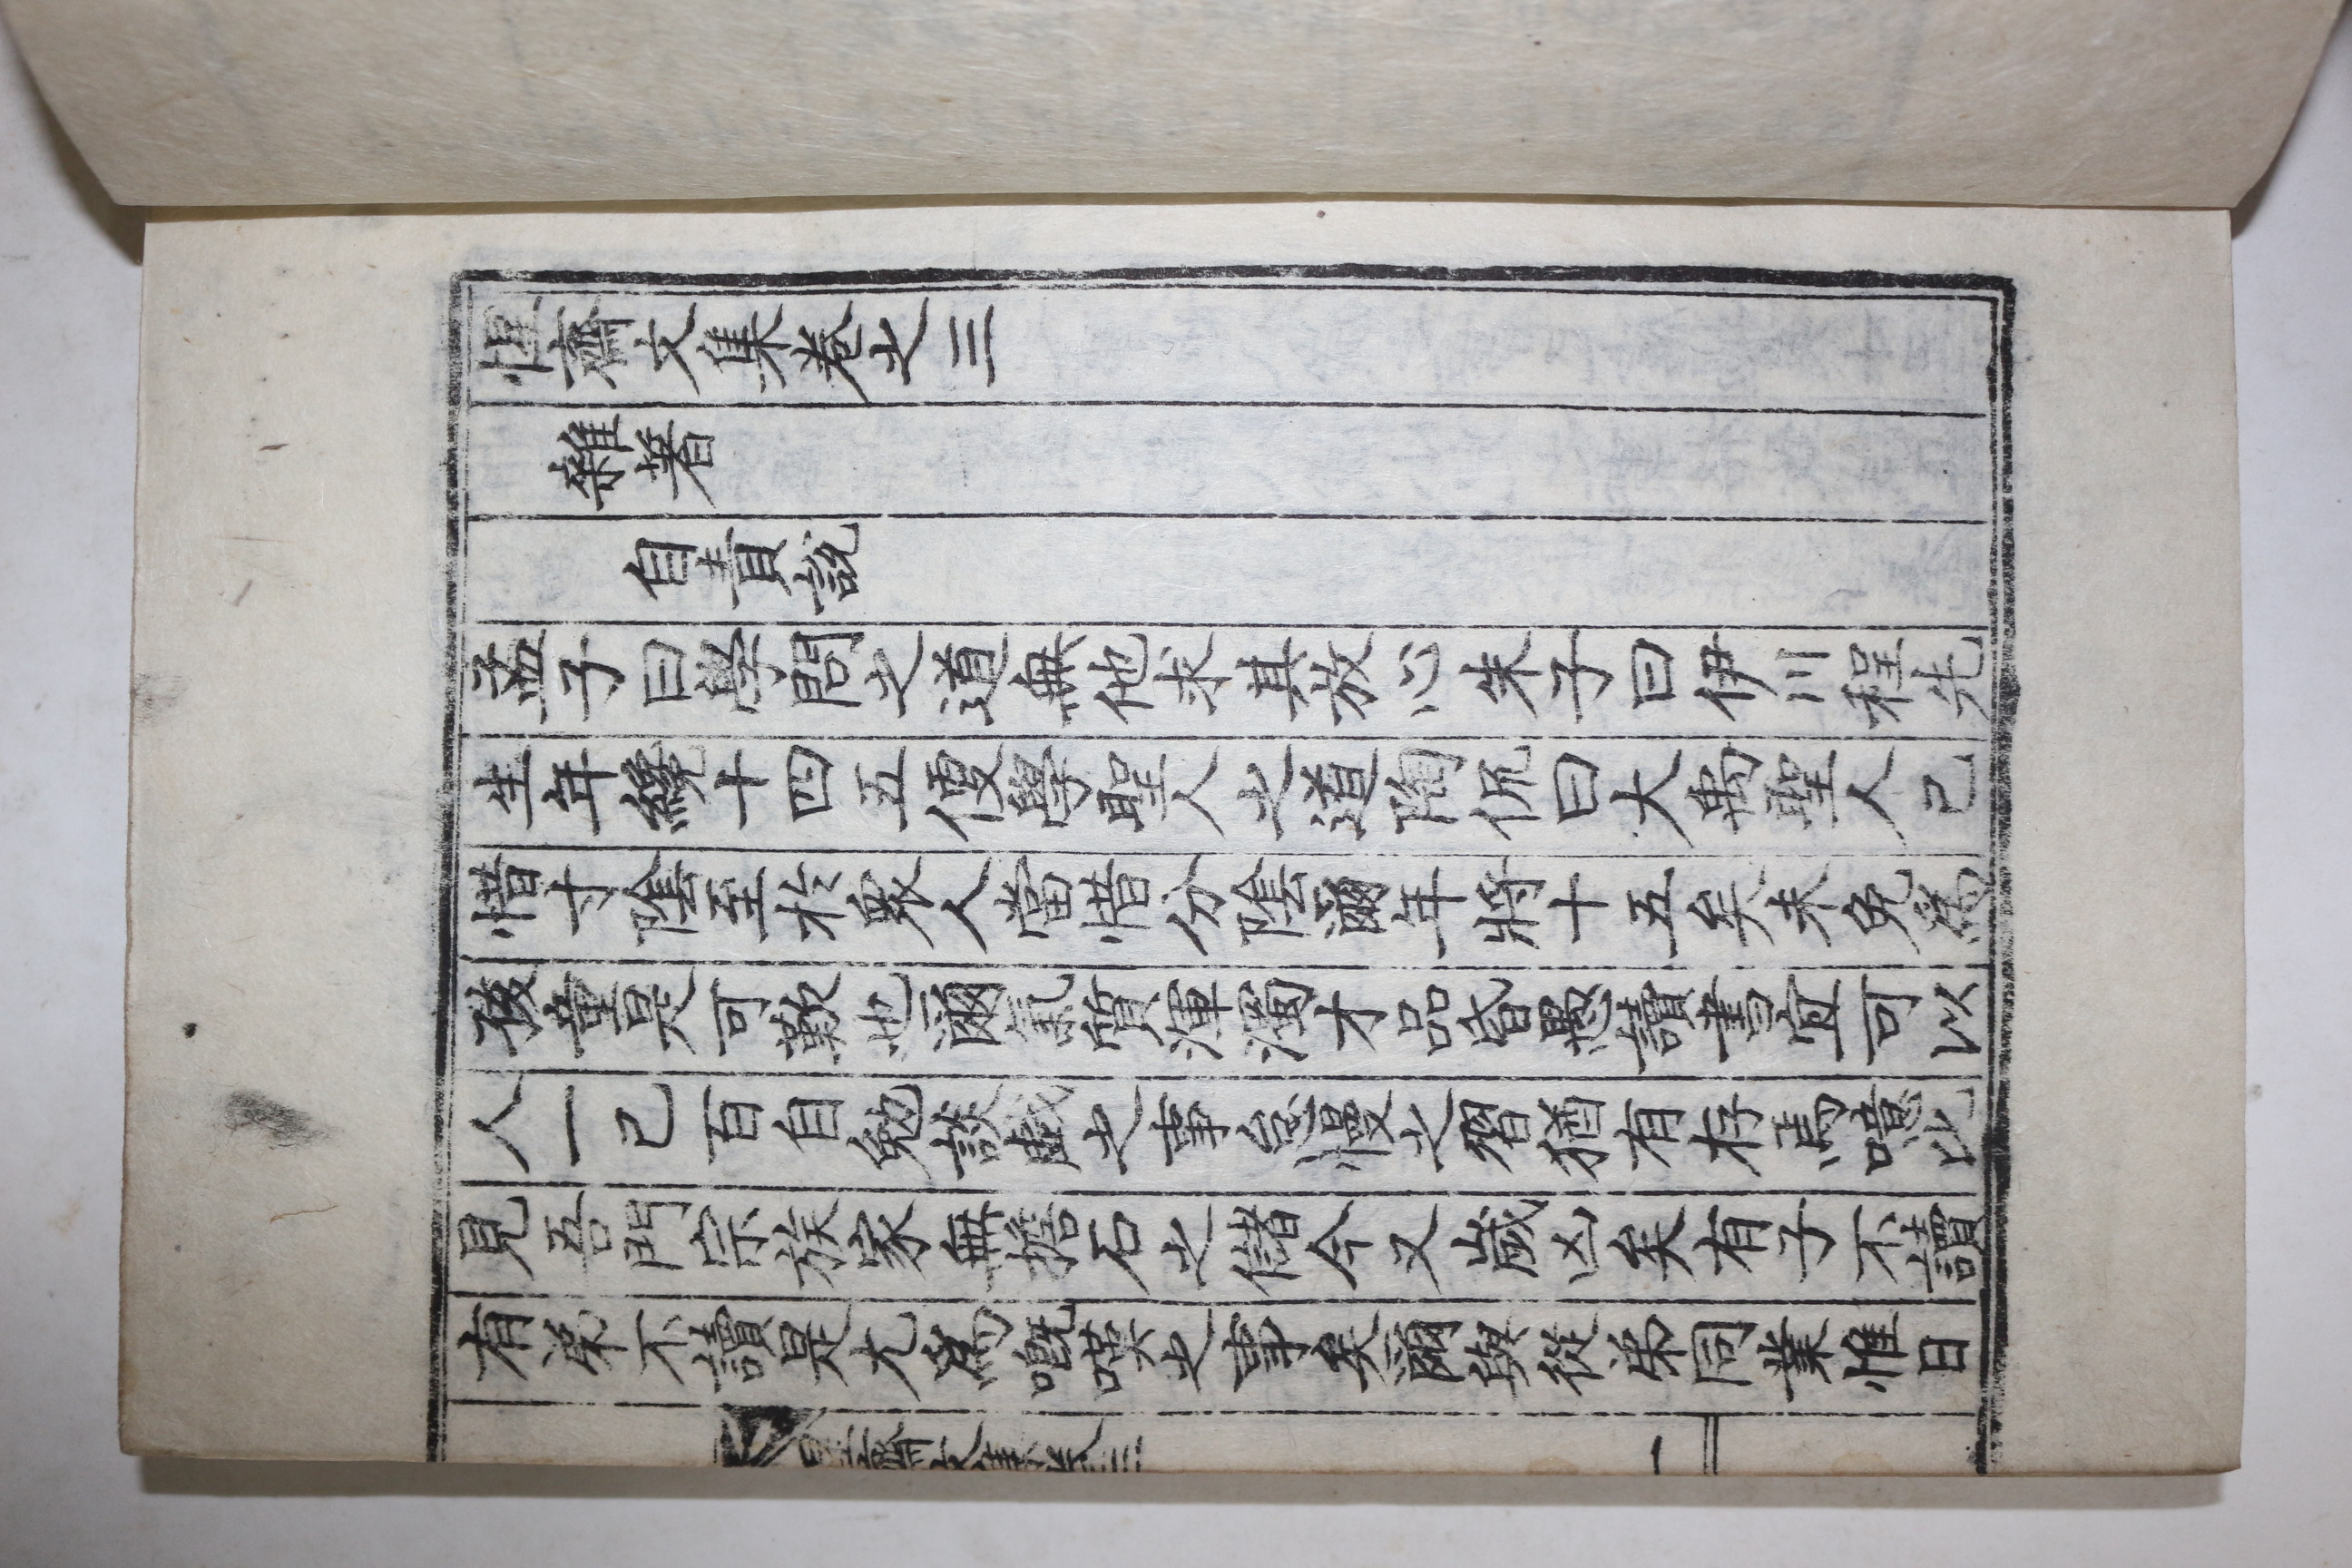 惺齋文集卷之三
雜著
自責說
孟子曰學問之道無他求其放心朱子曰伊川程先
生年纔十四五便學聖人之道陶侃曰大禹聖人已
惜寸陰至於衆人當惜分陰爾年將十五矣未免爲
孩童是可歎也爾氣質渾濁才品昏愚讀書宜可以
人一己百自勉談戲之事怠慢之習猶有存焉噫比
見吾門宗族家無擔石之儲今又歲凶矣有子不讀
有弟不讀是尤爲嘅嘆之事矣爾與從弟同業惟日
惺齋文集卷三
一